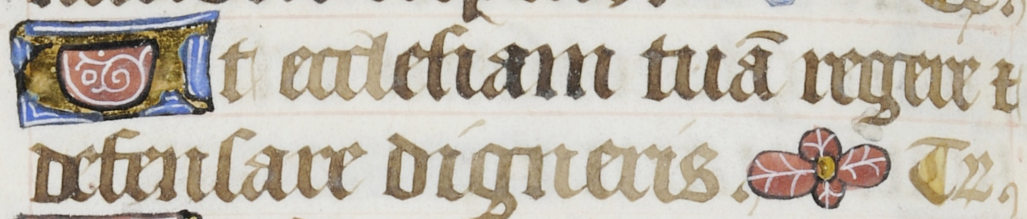 Ut ecclesiam tuā regere ⁊
defensare digneris. Te.